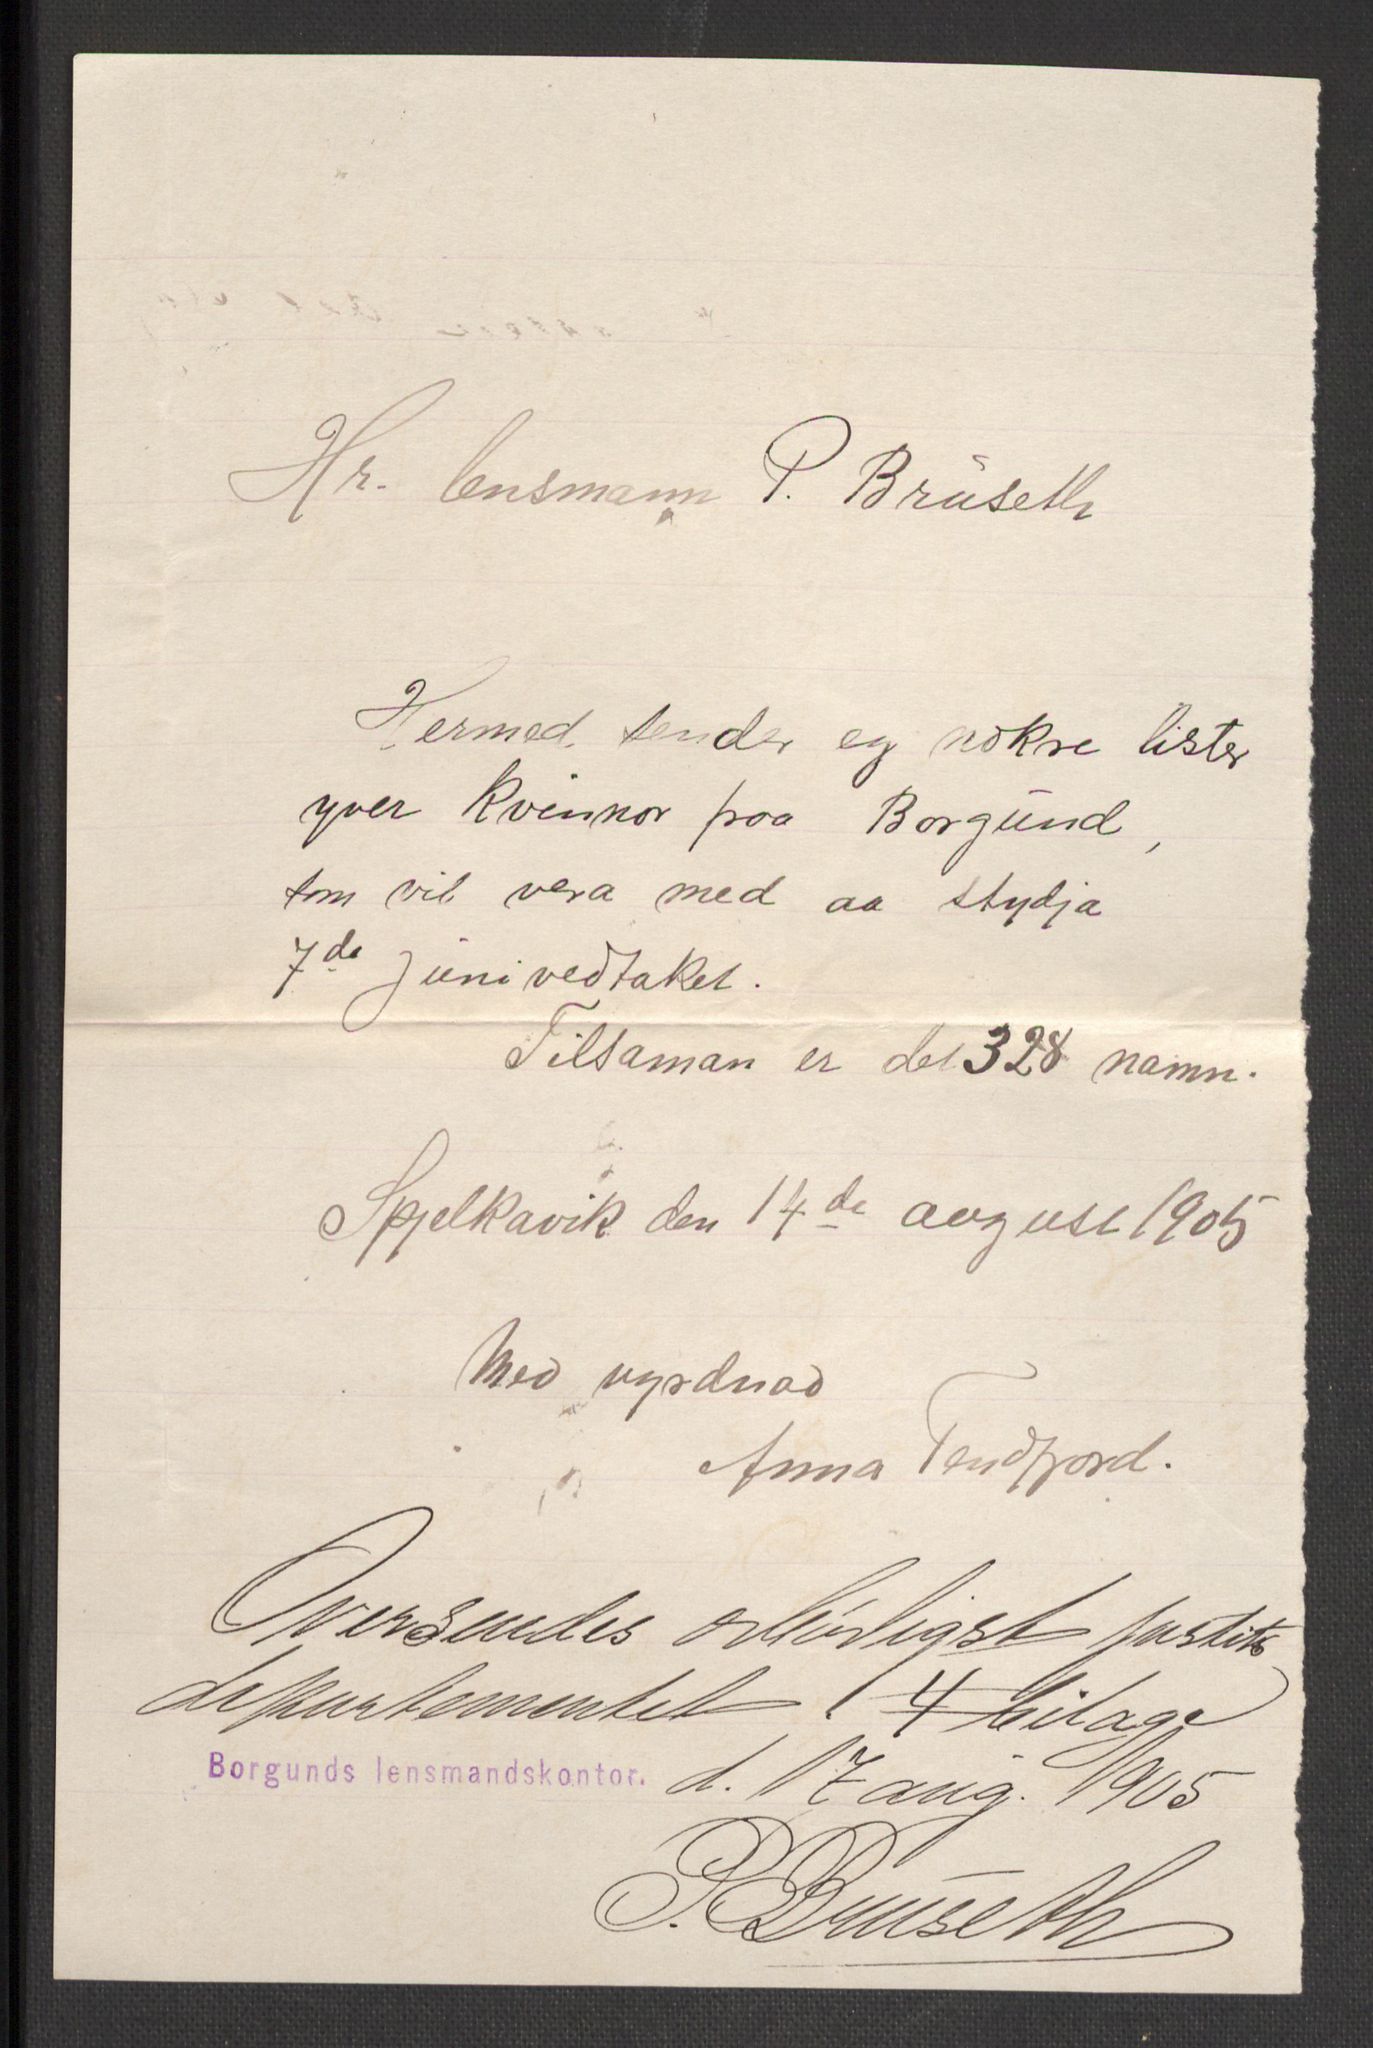 Hr. lensmann P. Brüseth
Hermed sender eg nokre lister
yver kvinnor paa Borgund,
som vil vera med aa stydja
7de junivedtaket.
Tilsaman er det 328 namn.
Spjelkavik den 14de avgust 1905
Med vyrdnad
Anna Tendfjord.
Oversendes ærbødigst justits
departementet. 4 bilage
Borgunds lensmandskontor. d. 17 aug. 1905
P. Brüseth